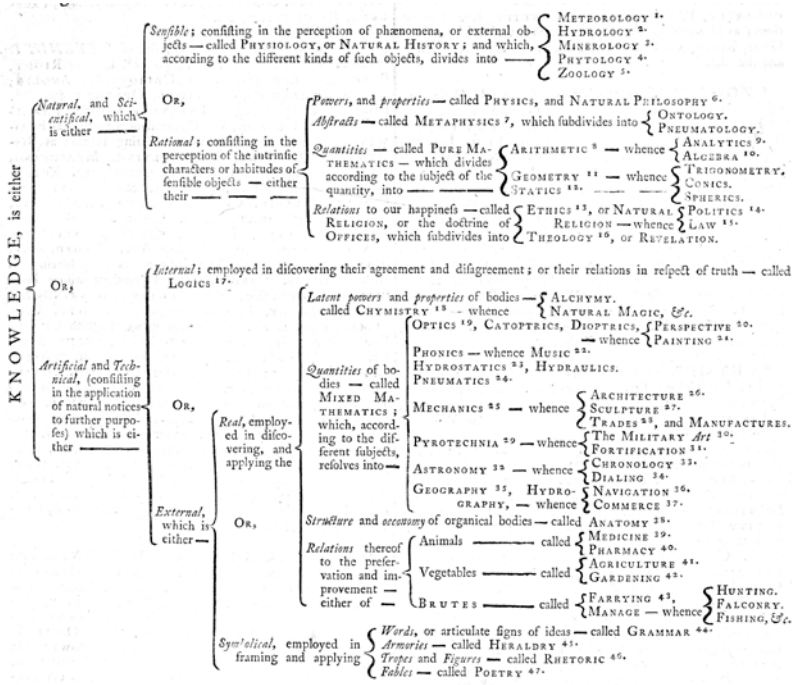 KNOWLEDGE, is either
Natural, and Sci-
entifical, which
is either
Senſible; conſiſting in the perception of phænomena, or external ob-
jects — called PHYSIOLOGY, or NATURAL HISTORY; and which,
according to the different kinds of ſuch objects, divides into —
METEOROLOGY 1.
HYDROLOGY 2.
MINEROLOGY 3.
PHYTOLOGY 4.
ZOOLOGY 5.
OR,
Rational; conſiſting in the
perception of the intrinſic
characters or habitudes of
ſenſible objects — either
their — — —
Powers, and properties — called PHYSICS, and NATURAL PHILOSOPHY 6.
Abſtracts — called METAPHYSICS 7, which ſubdivides into
ONTOLOGY.
PNEUMATOLOGY.
Quantities — called PURE MA-
THEMATICS — which divides
according to the ſubject of the
quantity, into — — —
ARITHMETIC 8 — whence
ANALYTICS 9.
ALGEBRA 10.
GEOMETRY 11 — whence
TRIGONOMETRY.
CONICS.
SPHERICS.
STATICS 12.
Relations to our happineſs — called
RELIGION, or the doctrine of
OFFICES, which ſubdivides into
ETHICS 13, or NATURAL
RELIGION — whence
POLITICS 14.
LAW 15.
THEOLOGY 16, or REVELATION.
OR,
Artificial and Tech-
nical, (conſiſting
in the application
of natural notices
to further purpo-
ſes) which is ei-
ther
Internal; employed in diſcovering their agreement and diſagreement; or their relations in reſpect of truth — called
LOGICS 17.
OR,
External,
which is
either —
Real, employ-
ed in diſco-
vering, and
applying the
Latent powers and properties of bodies —
called CHYMISTRY 18 - whence
ALCHYMY.
NATURAL MAGIC, &c.
Quantities of bo-
dies — called
MIXED MA-
THEMATICS;
which, accord-
ing to the dif-
ferent ſubjects,
reſolves into —
OPTICS 19, CATOPTRICS, DIOPTRICS,
— whence
PERSPECTIVE 20.
PAINTING 21.
PHONICS — whence MUSIC 22.
HYDROSTATICS 23, HYDRAULICS.
PNEUMATICS 24.
MECHANICS 25 — whence
ARCHITECTURE 26.
SCULPTURE 27.
TRADES 28, and MANUFACTURES.
PYROTECHNIA 29 — whence
The MILITARY Art 30.
FORTIFICATION 31.
ASTRONOMY 32 — whence
CHRONOLOGY 33.
DIALING 34.
GEOGRAPHY 35, HYDRO-
GRAPHY, — whence
NAVIGATION 36.
COMMERCE 37.
Structure and oeconomy of organical bodies — called ANATOMY 38.
Relations thereof
to the preſer-
vation and im-
provement —
either of —
Animals — called
MEDICINE 39.
PHARMACY 40.
Vegetables — called
AGRICULTURE 41.
GARDENING 42.
BRUTES — called
FARRYING 43,
MANAGE — whence
HUNTING.
FALCONRY.
FISHING, &c.
OR,
Symbolical, employed in
framing and applying
Words, or articulate ſigns of ideas — called GRAMMAR 44.
Armories — called HERALDRY 45.
Tropes and Figures — called RHETORIC 46.
Fables — called POETRY 47.